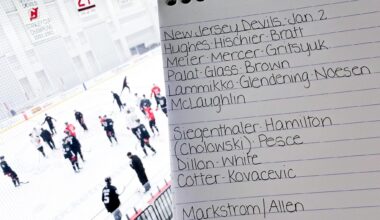 New Jersey Devils · Jan. 2
Hughes · Hischier · Bratt
Meier · Mercer · Gritsyuk
Palat · Glass · Brown
Lammikko · Glendening · Noesen
McLaughlin
Siegenthaler · Hamilton
(Cholowski) · Pesce
Dillon · White
Cotter · Kovacevic
Markstrom/Allen